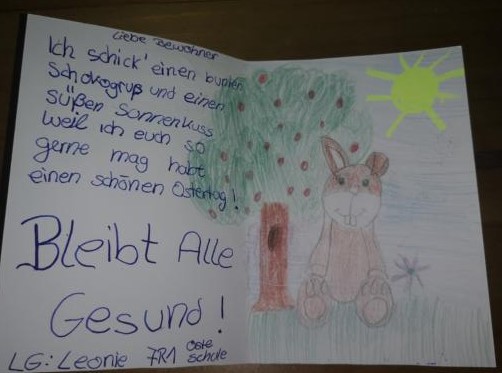 Liebe Bewohner
Ich schick' einen bunten
Schokogruß und einen
süßen Sonnenkuss
weil ich euch so
gerne mag habt
einen schönen Ostertag!
Bleibt Alle
Gesund!
LG: Leonie 7R1 Oste
schule